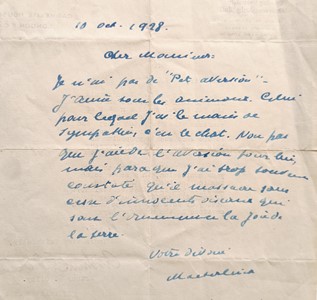 10 oct. 1928.
Cher Monsieur
Je n'ai pas de "Pet aversion" -
J'aime tous les animaux. Celui
pour lequel j'ai le moins de
sympathie, c'est le chat. Non pas
que j'aie de l'aversion pour lui,
mais parce que j'ai trop souvent
constaté qu'il massacre sans
cesse d'innocents oiseaux qui
sont l'ornement et la joie de
la terre.
Votre dévoué
Maeterlinck